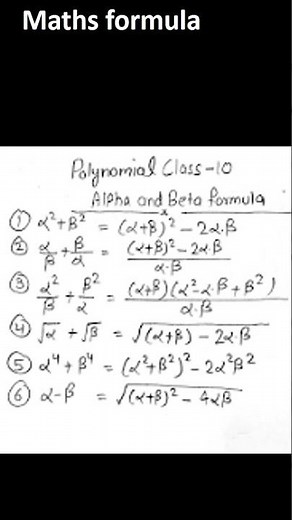 Maths formula
Polynomial Class-10
Alpha and Beta formula
① α²+β² = (α+β)² - 2α.β
② α/β + β/α = (α+β)² - 2αβ / α.β
③ α²/β + β²/α = (α+β)(α²-α.β+β²) / α.β
④ √α + √β = √(α+β) - 2α.β
⑤ α⁴ + β⁴ = (α²+β²)² - 2α²β²
⑥ α-β = √(α+β)² - 4αβ